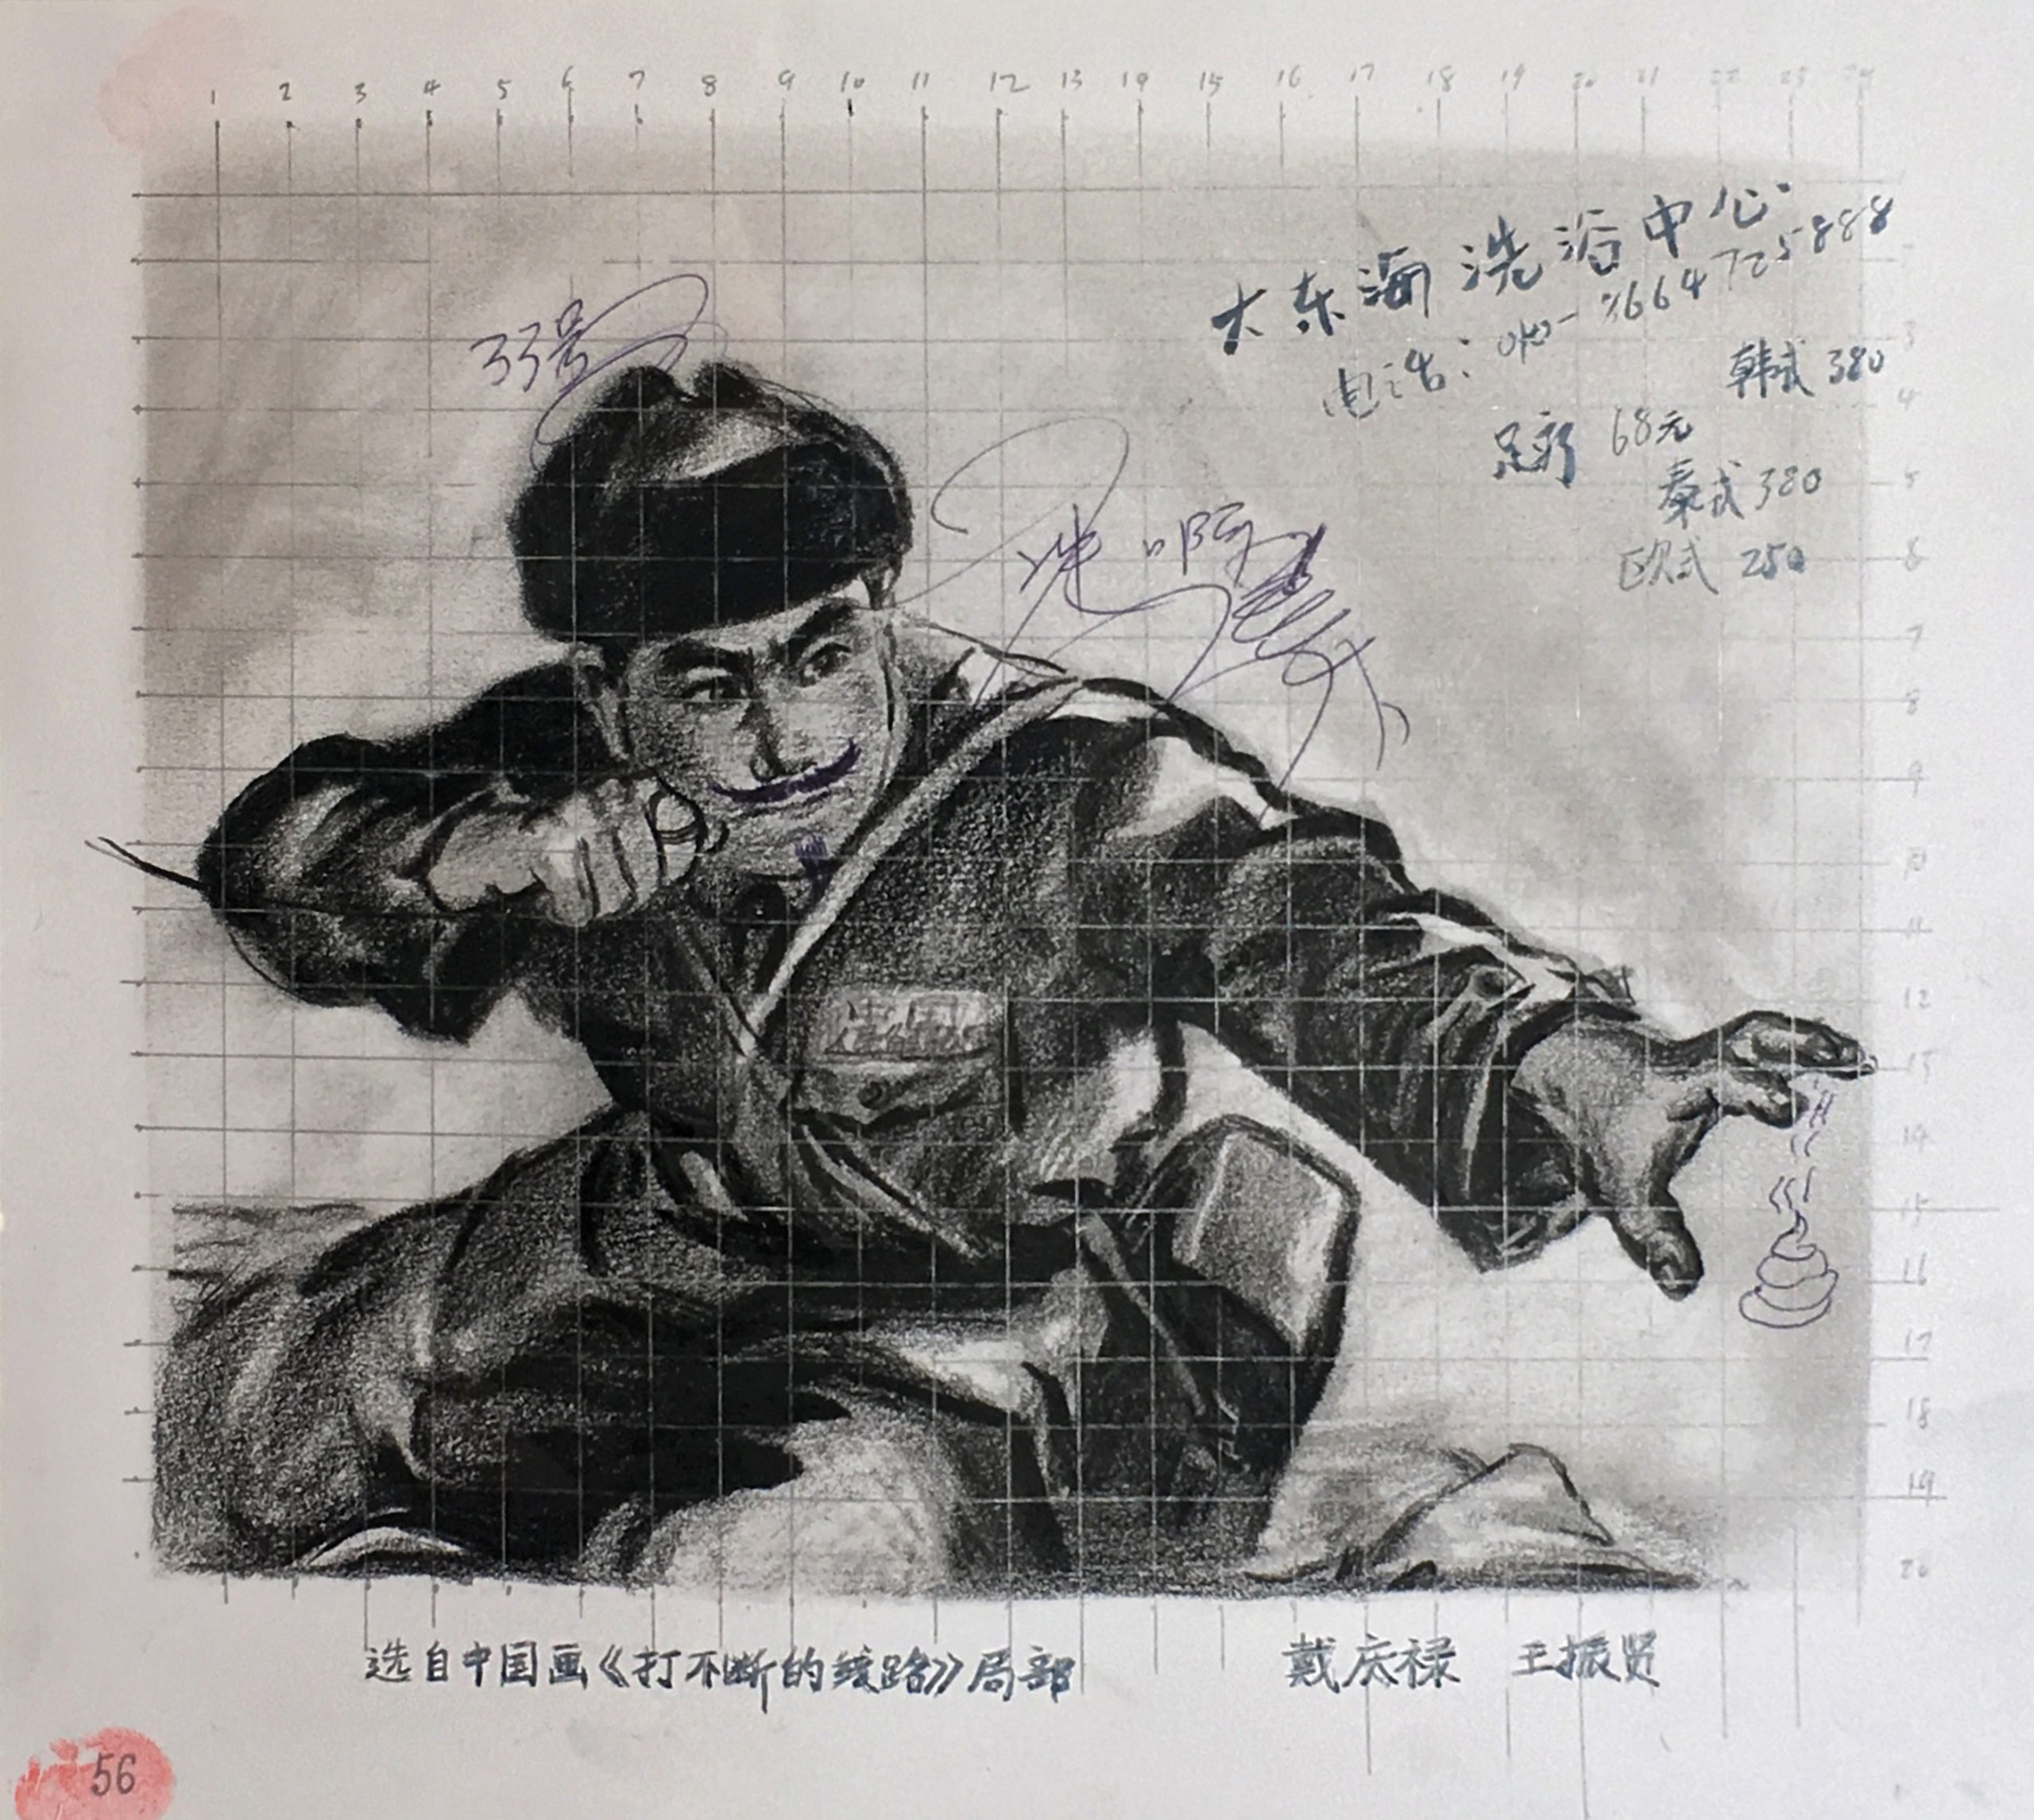 1 2 3 4 5 6 7 8 9 10 11 12 13 14 15 16 17 18 19 20 21 22 23 24
大东海洗浴中心
电话:
725888
33号
韩式 380
足疗 68元
泰式 380
欧式 250
3
4
5
6
7
8
9
10
11
12
13
14
15
16
17
18
19
20
选自中国画《打不断的线路》局部 戴庆禄 王振贤
56